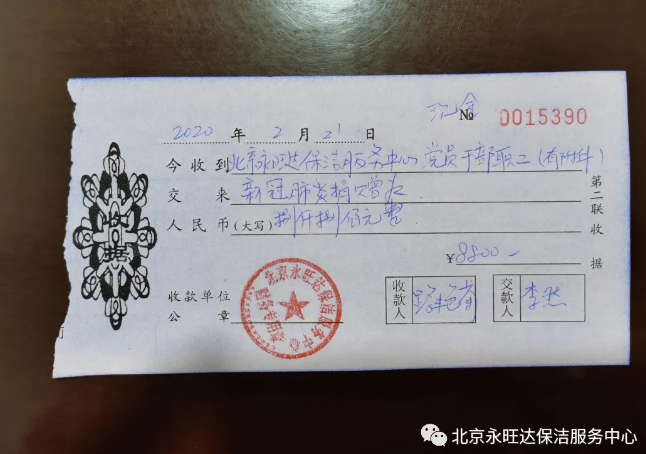 现金 № 0015390
2020 年 2 月 21 日
今收到 北京永旺达保洁服务中心 党员干部职工(有附件)
交来 新冠肺炎捐赠款
人民币(大写) 捌仟捌佰元整
¥8800-
收款单位
公章
收款人
交款人 李然
第二联收据
收据
北京永旺达保洁服务中心
财务专用章
北京永旺达保洁服务中心